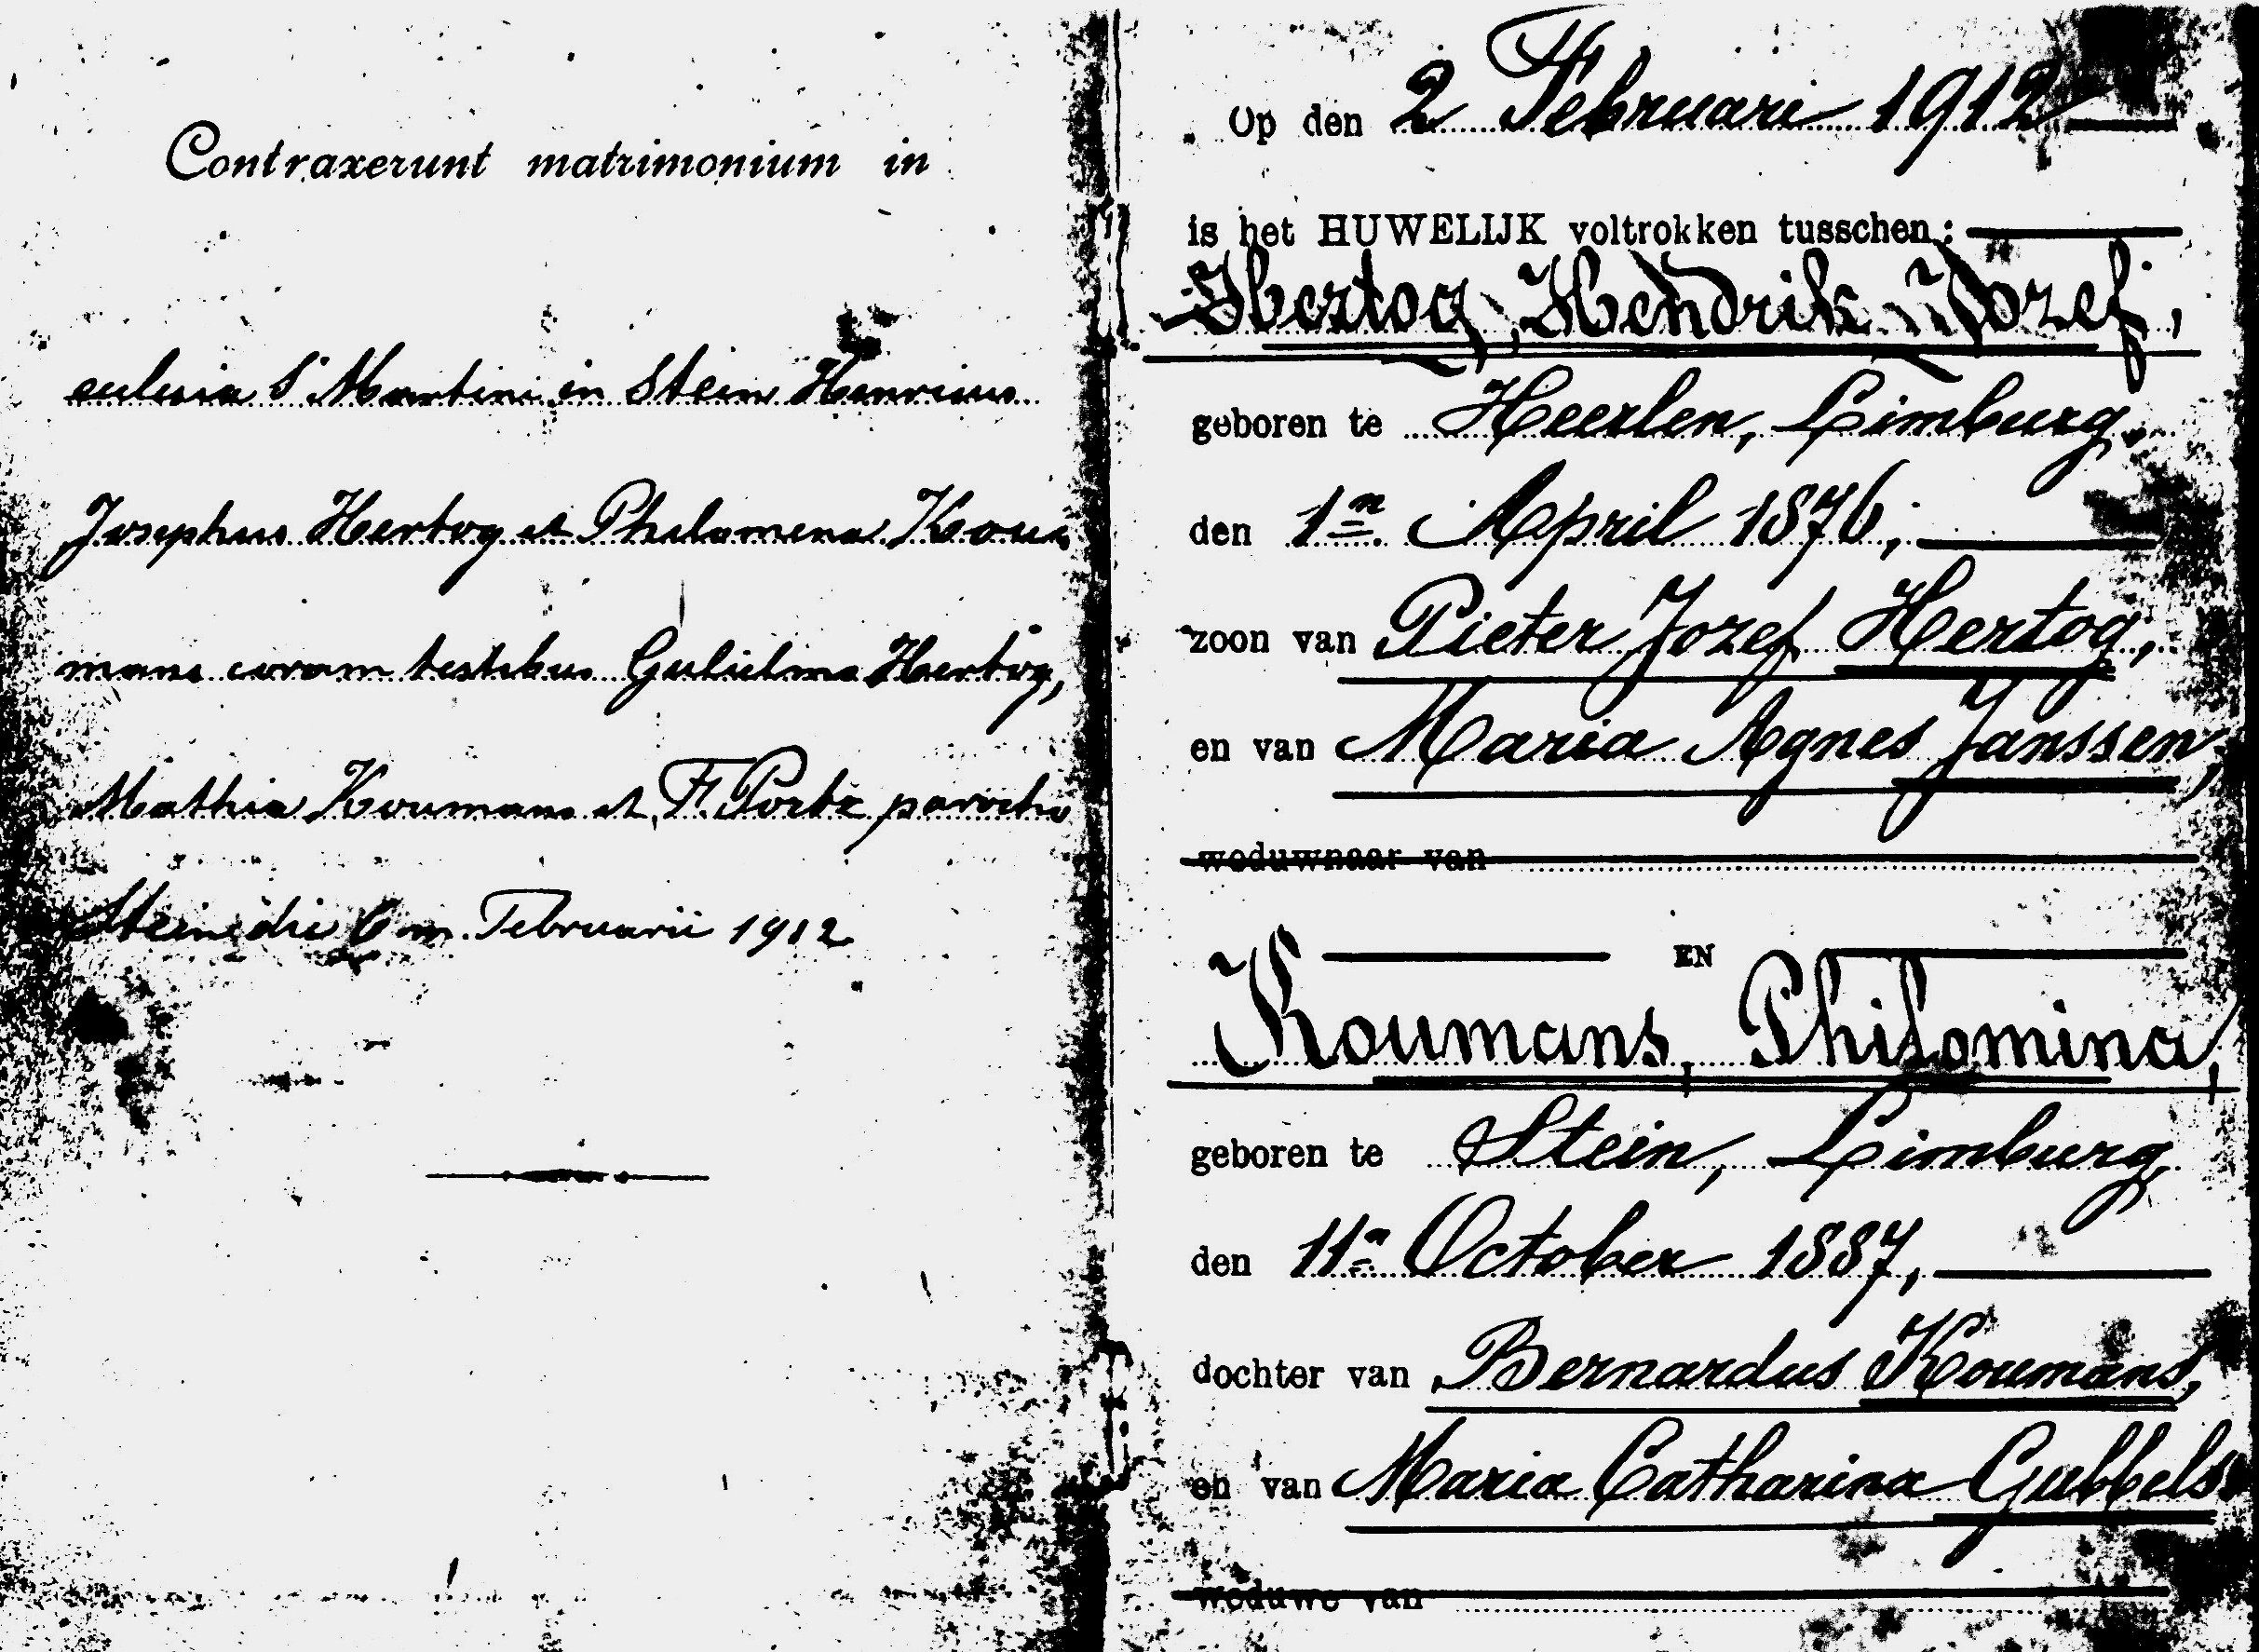 Contraxerunt matrimonium in
ecclesia S. Martini in Stein Henricus
Josephus Hertog et Philomena Kou
mans coram testibus Gulielmo Hertog,
Mathia Koumans et F. Portz parocho
Stein die 6 m. Februarii 1912
Op den 2 Februari 1912
is het HUWELIJK voltrokken tusschen:
Hertog, Hendrik Jozef,
geboren te Heerlen, Limburg,
den 1n April 1876,
zoon van Pieter Jozef Hertog,
en van Maria Agnes Janssen,
weduwnaar van
EN
Koumans, Philomina,
geboren te Stein, Limburg,
den 11n October 1887,
dochter van Bernardus Koumans,
en van Maria Catharina Gubbels
weduwe van